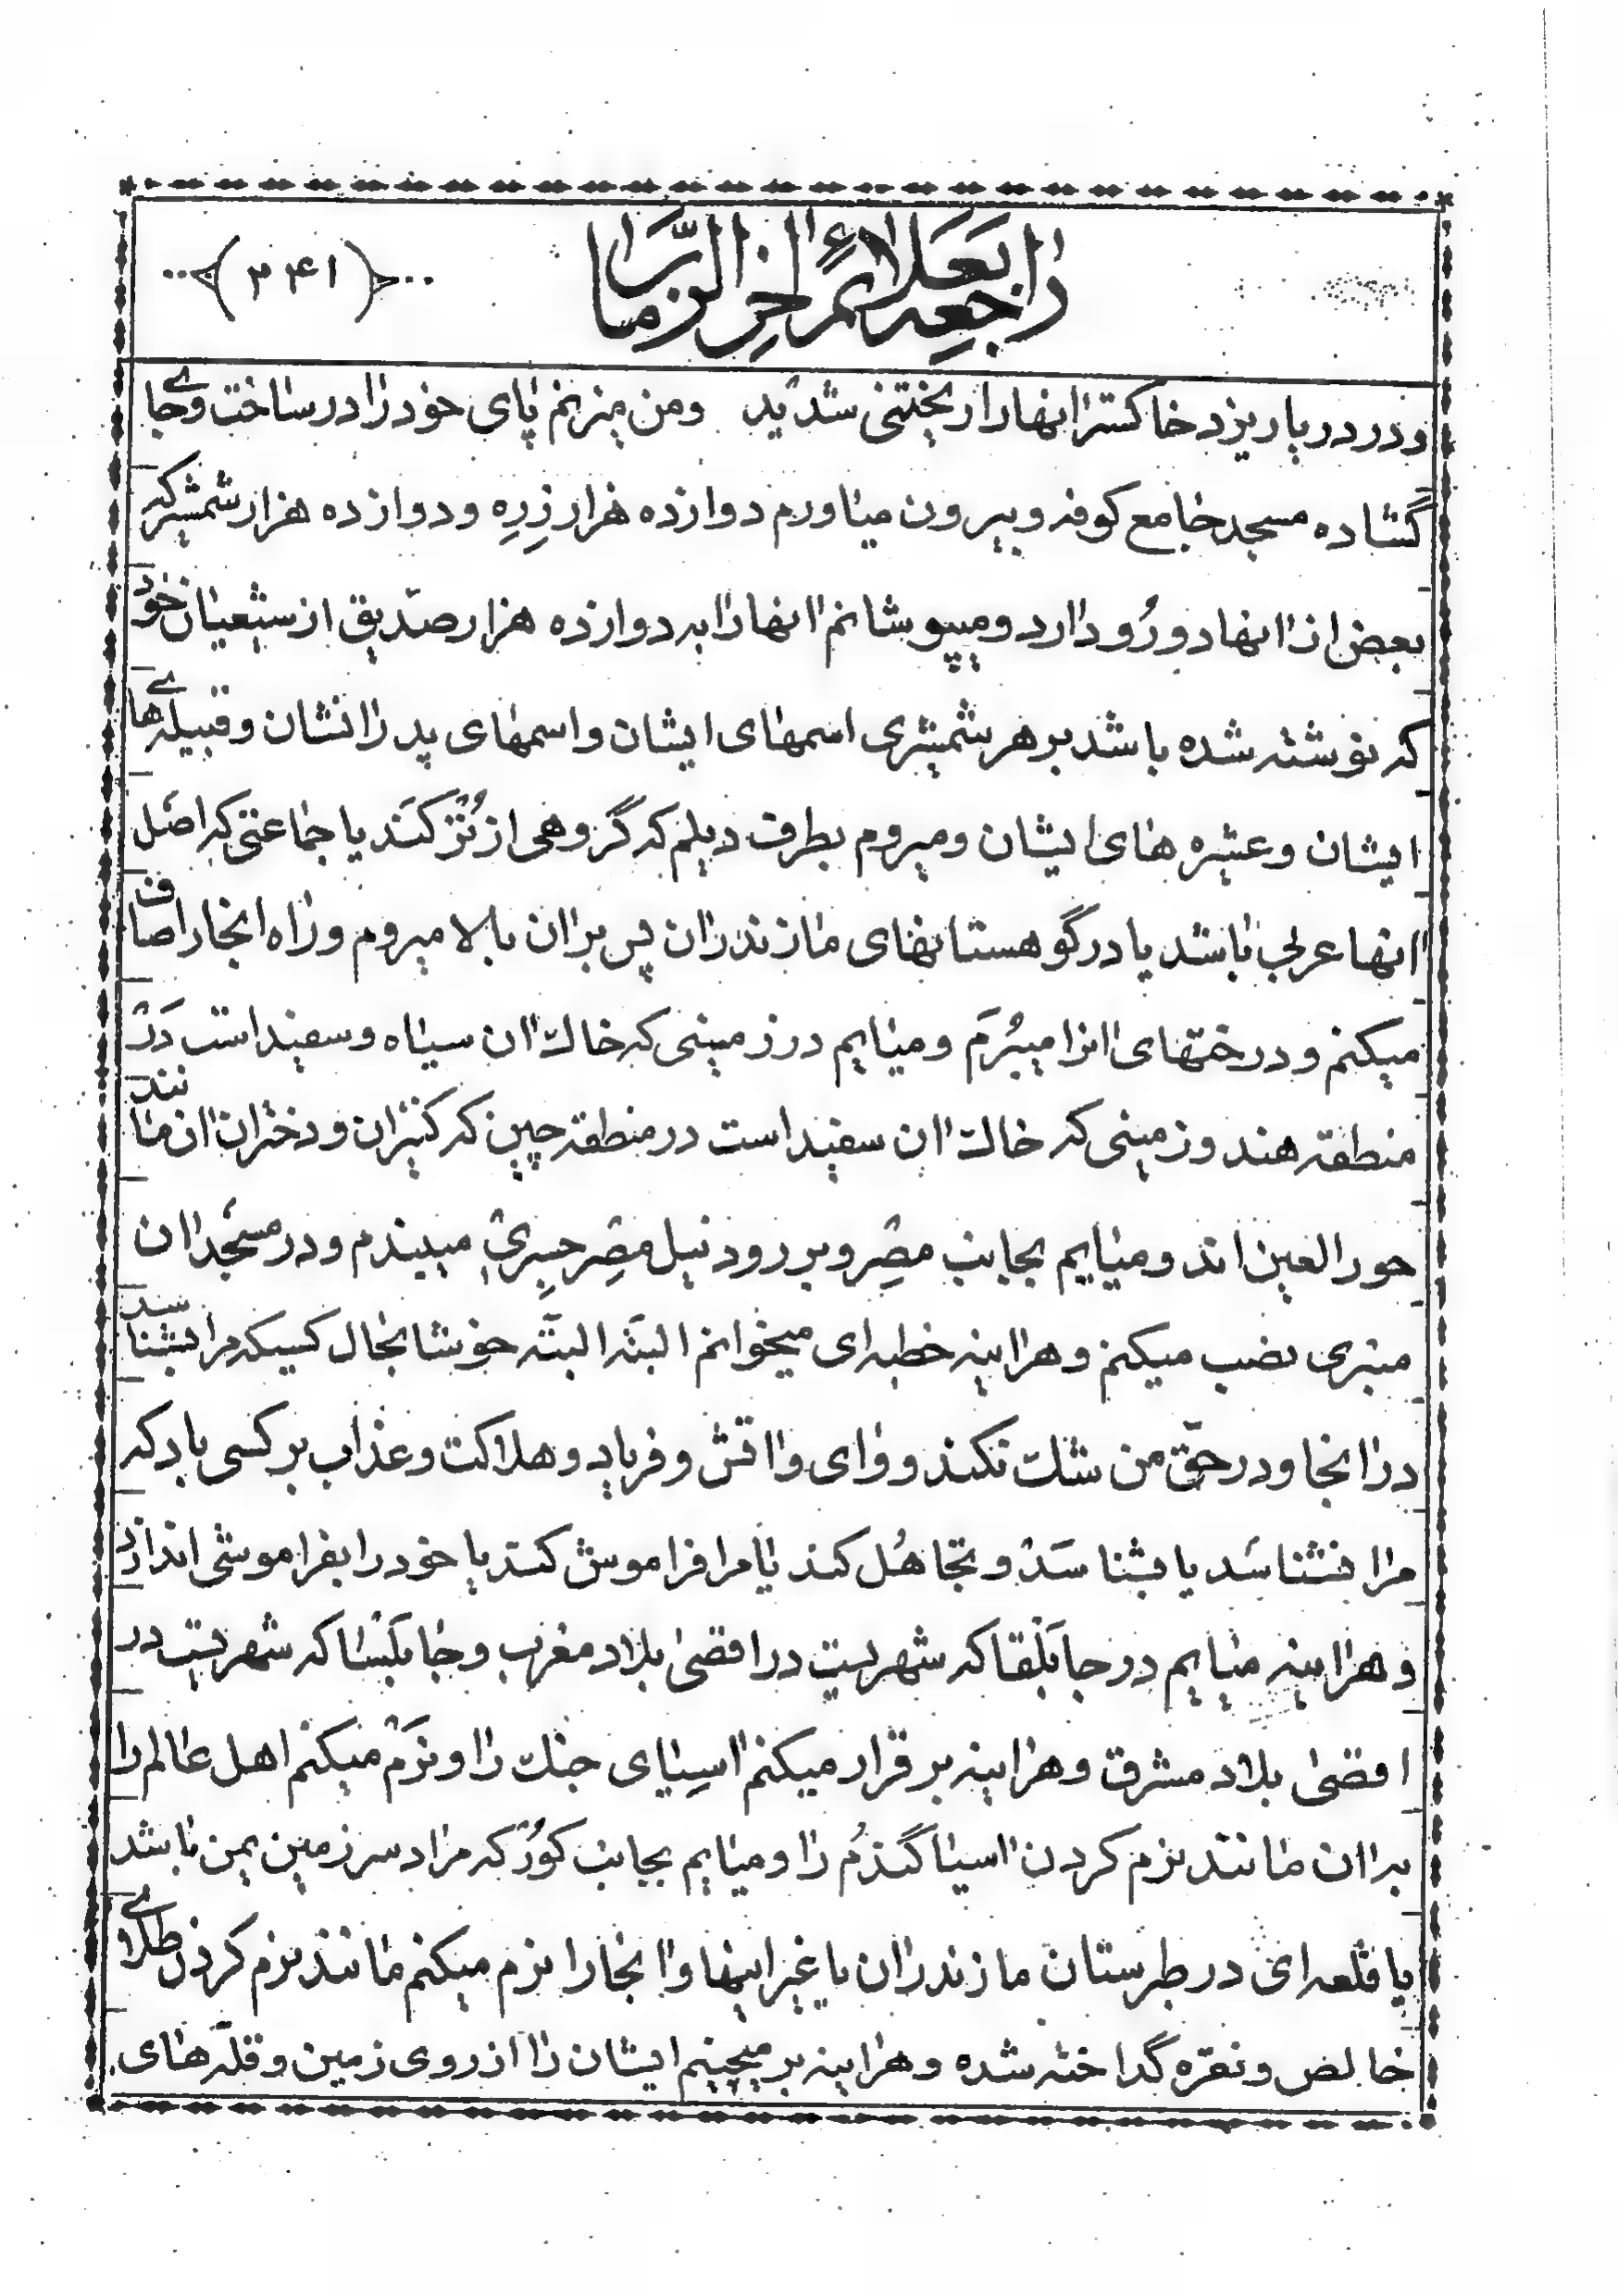 راجعه بعلائم اخر الزمان
(۳۴۱)
و در دریا ریزد خاکستر انها را ریختنی شدید و من میزنم پای خود را در ساخت و جای
گشاده مسجد جامع کوفه و بیرون میاورم دوازده هزار زِرِه و دوازده هزار شمشیر که
بعض از انها دو رُو دارد و میپوشانم انها را به دوازده هزار صدّیق از شیعیان خود
که نوشته شده باشد بر هر شمشیری اسمهای ایشان و اسمهای پدرانشان و قبیله‌های
ایشان و عشیره های ایشان و میروم بطرف دیلم که گروهی از تُرکند یا جماعتی که اصل
انها عربی باشد یا در گوهستانهای مازندران پس بران بالا میروم و راه انجا را صاف
میکنم و درختهای انرا میبُرَم و میایم در زمینی که خاک ان سیاه و سفید است در
منطقه هند و زمینی که خاک ان سفید است در منطقه چین که کنیزان و دختران ان مانند
حور العین اند و میاییم بجانب مصِر و بر رود نیل مصِر جِسِری میبندم و در مسجد ان
منبری نصب میکنم و هراینه خطبه ای میخوانم البتّه البتّه خوشا بحال کسیکه مرا بشناسد
در انجا و در حقّ من شک نکند و وای و اتش و فریاد و هلاکت و عذاب بر کسی باد که
مرا نشناسَد یا بشناسَد و تجاهُل کند یا مرا فراموش کند یا خود را بفراموشی اندازد
و هراینه میایم در جابَلقا که شهریست در اقصیٰ بلاد مغرب و جابَلسا که شهریست در
اقصیٰ بلاد مشرق و هراینه بر قرار میکنم اسِیای جنک را و نَرم میکنم اهل عالم را
بران مانند نرم کردن اسیا گندُم را و میایم بجانب کوُر که مراد سرزمین یمن باشد
یا قلعه ای در طبرستان مازندران یا غیر اینها و انجا را نرم میکنم مانند نرم کردن طلای
خالص و نقره گداخته شده و هراینه بر میچینم ایشان را از روی زمین و قلّه های